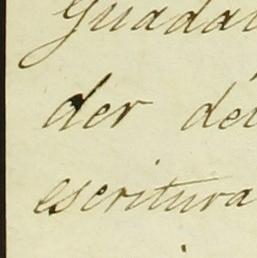 Guadal
der del
escritura